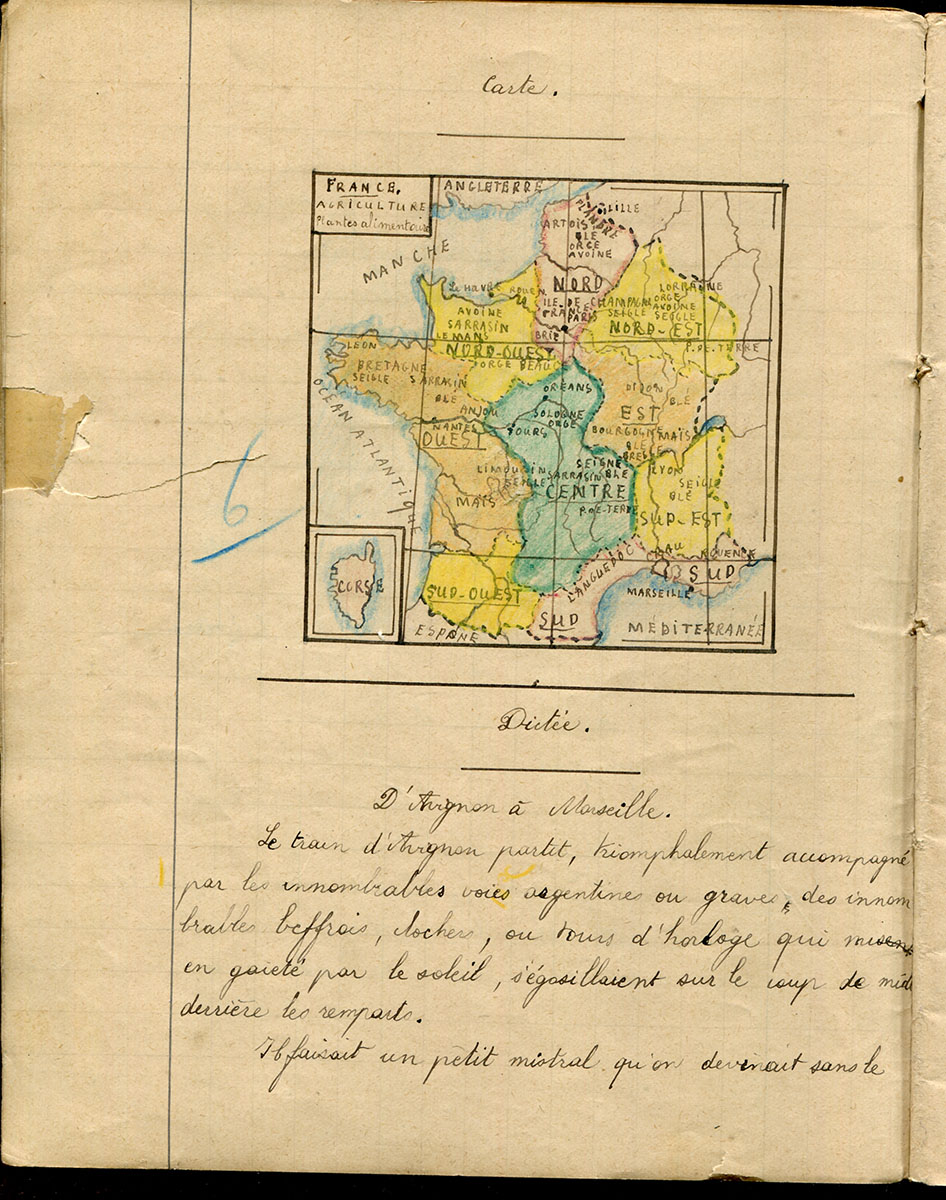 Carte.
FRANCE.
AGRICULTURE
Plantes alimentaires
ANGLETERRE
MANCHE
FLANDRE
LILLE
ARTOIS
BLÉ
ORGE
AVOINE
NORD
ILE-DE-
FRANCE
PARIS
BRIE
Le HAVRE ROUEN
AVOINE
SARRASIN
LE MANS
NORD-OUEST
ORGE BEAUCE
CHAMPAGNE
SEIGLE
LORRAINE
ORGE
AVOINE
SEIGLE
NORD-EST
P. DE TERRE
LÉON
BRETAGNE
SEIGLE SARRASIN
BLÉ
ANJOU
NANTES
OUEST
OCÉAN ATLANTIQUE
LIMOUSIN
SEIGLE
MAÏS
ORÉANS
SOLOGNE
ORGE
TOURS
SEIGNE
SARRASIN BLÉ
CENTRE
P. DE-TERRE
DIJON
BLÉ
EST
BOURGOGNE MAÏS
BLÉ
BRESSE
LYON
SEIGLE
BLÉ
SUD-EST
SUD
MARSEILLE
MEDITERRANÉE
LANGUEDOC
SUD
SUD-OUEST
ESPANE
CORSE
6
Dictée.
D'Avignon à Marseille.
Le train d'Avignon partit, triomphalement accompagné
par les innombrables voies argentines ou graves, des innom
brables beffrois, clochers, ou tours d'horloge qui misent
en gaieté par le soleil, s'égosillaient sur le coup de midi
derrière les remparts.
Il faisait un petit mistral qu'on devinait sans le